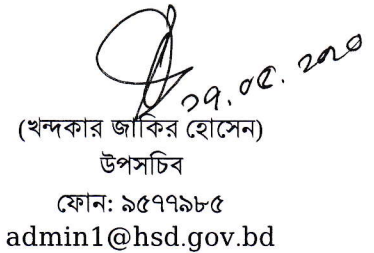 ২৭.০৫.২০২০
(খন্দকার জাকির হোসেন)
উপসচিব
ফোন: ৯৫৭৭৯৮৫
admin1@hsd.gov.bd